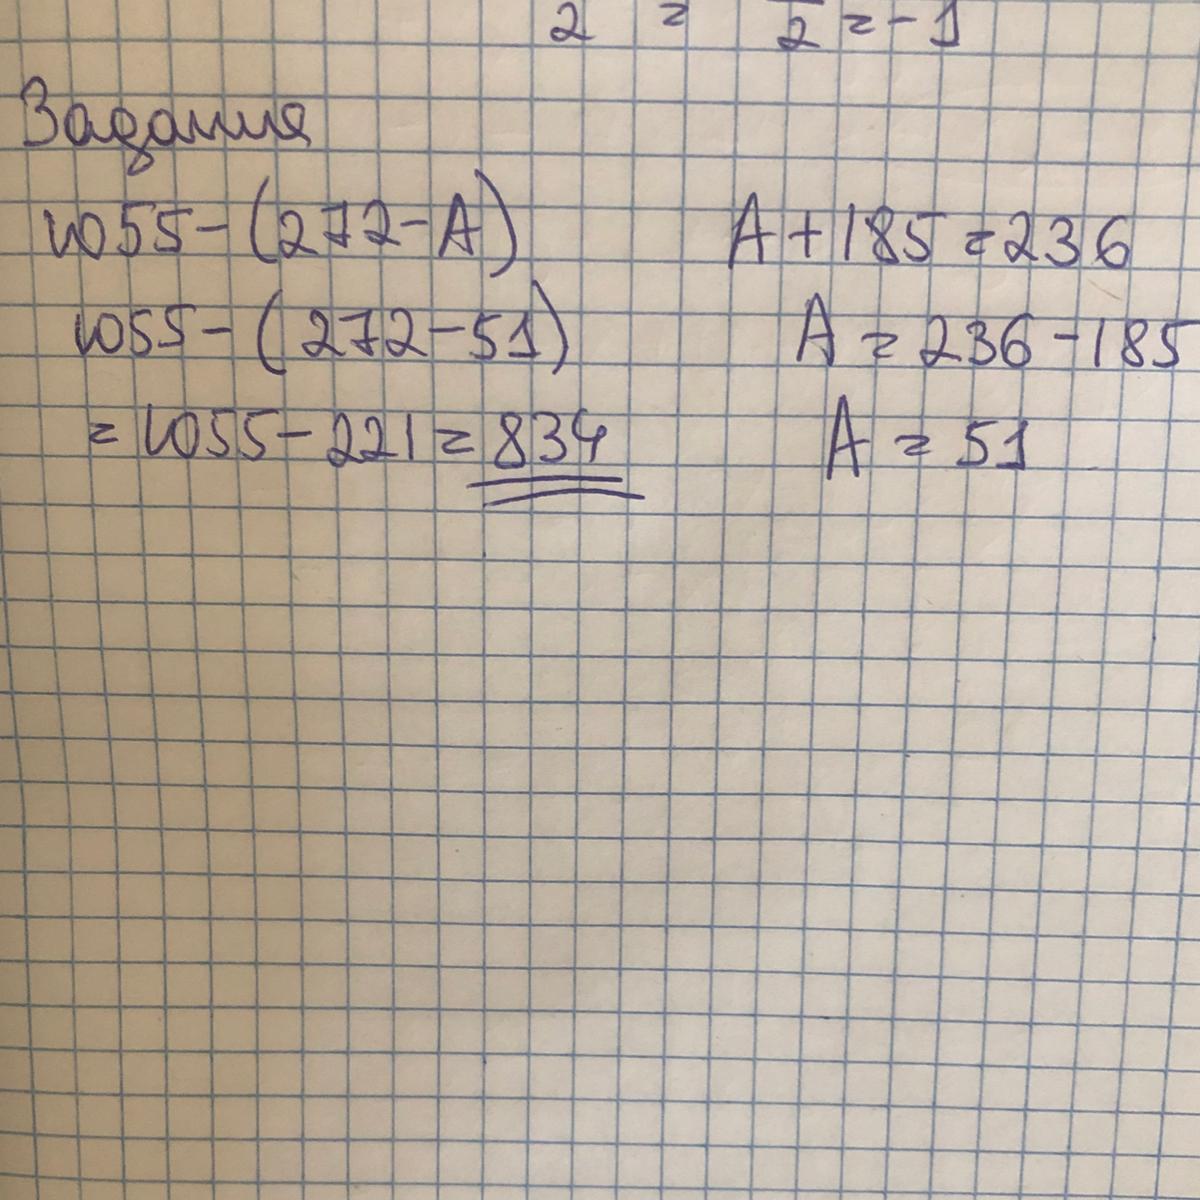 2 = 2 = -1
Задания
1055-(272-A) A+185=236
1055-(272-51) A=236-185
=1055-221=834 A=51